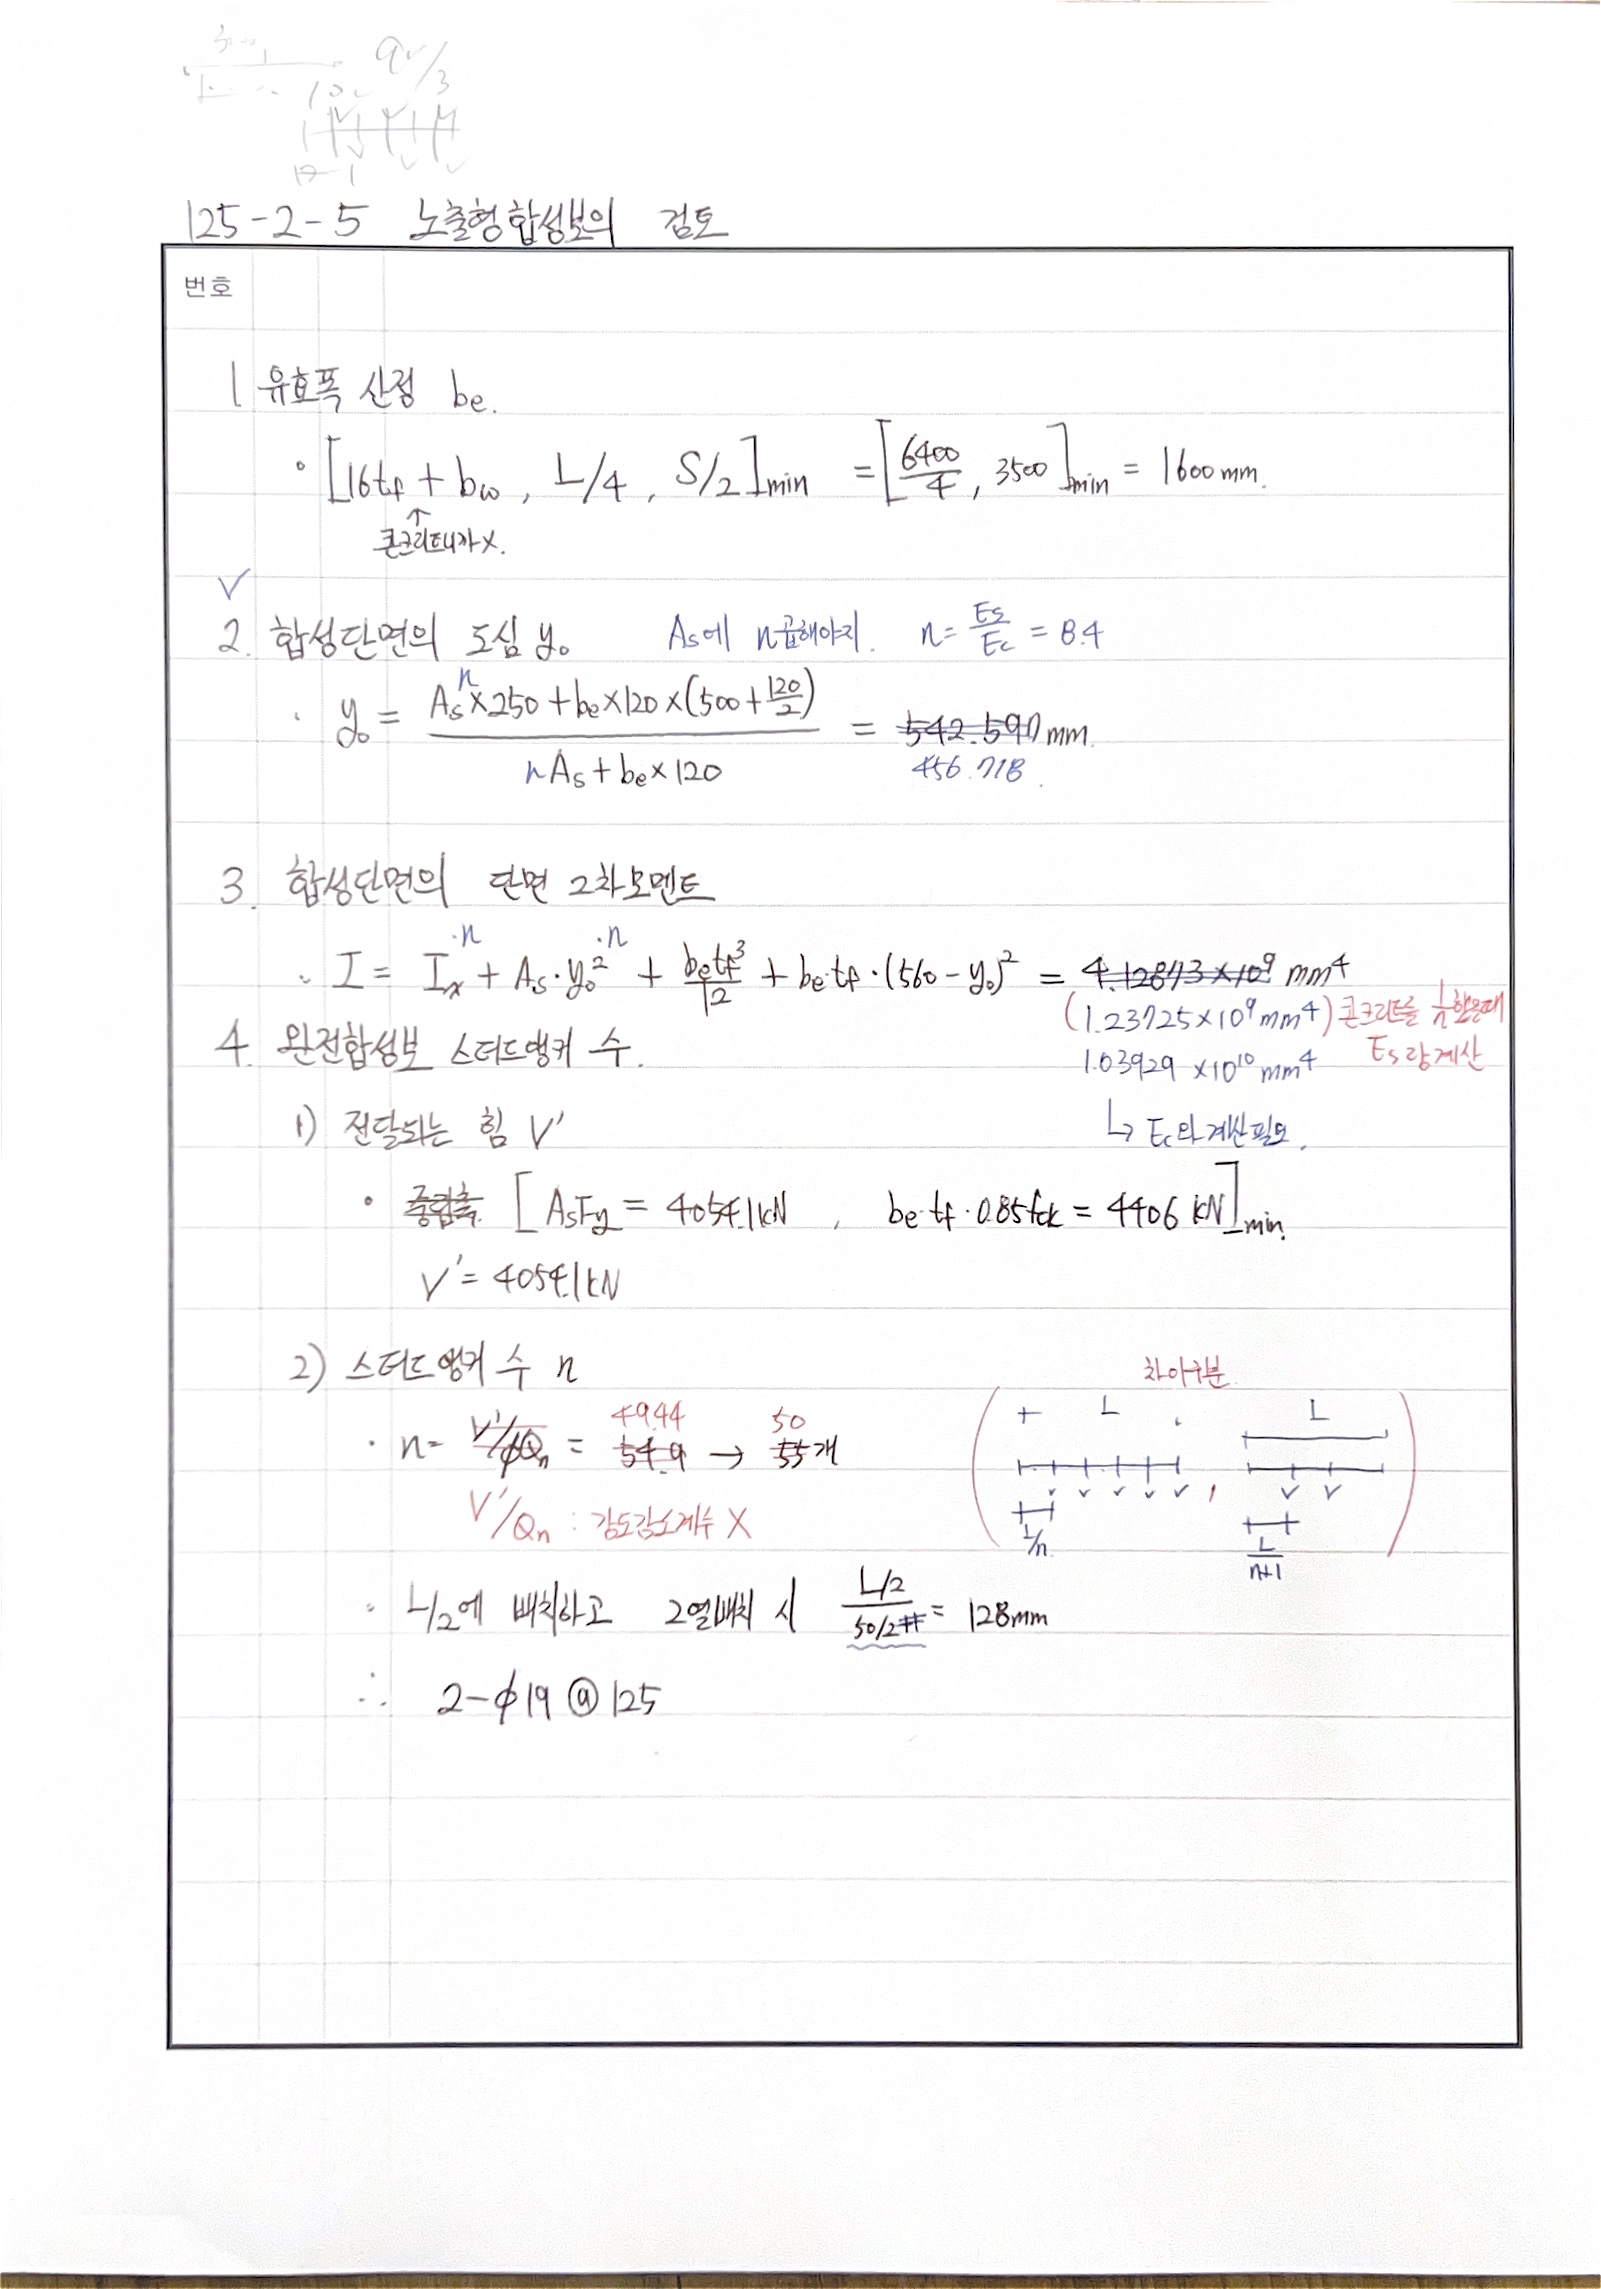 125-2-5 노출형합성보의 검토
번호
1 유효폭 산정 be.
• [16tf + bw, L/4, S/2]min = [6400/4, 3500]min = 1600mm.
↑
콘크리트니까 X.
✓
2. 합성단면의 도심 y₀ As에 n곱해야지. n = Es/Ec = 8.4
• y₀ = (As ⁿ×250 + be×120×(500+120/2)) / (nAs + be×120) = 542.590mm.
456.718.
3. 합성단면의 단면 2차모멘트
• I = Ix·n + As·y₀²·n + betf³/12 + be·tf·(560-y₀)² = 4.12873×10⁹ mm⁴
(1.23725×10⁹mm⁴) 콘크리트를 1/n 했을때
Es랑 계산
1.03929×10¹⁰mm⁴
↳ Ec와 계산필요.
4. 완전합성보 스터드앵커 수.
1) 전달되는 힘 V'
• 중립축 [AsFy = 4054.1kN, be·tf·0.85fck = 4406 kN]min.
V' = 4054.1kN
2) 스터드앵커 수 n
• n = V'/ϕQn = 54.9 → 55개
49.44 50
V'/Qn : 강도감소계수 X
차이구분
L L
L/n L/n+1
• L/2에 배치하고 2열배치 시 (L/2)/(50/2) = 128mm
∴ 2-ϕ19@125